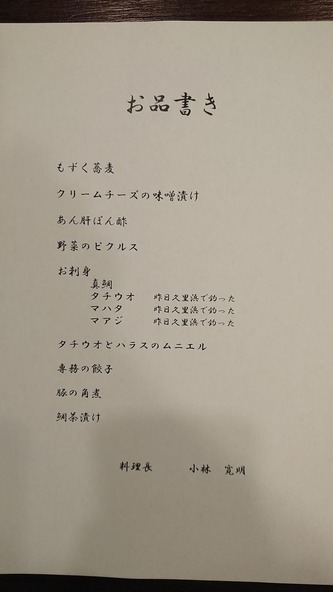 お品書き
もずく蕎麦
クリームチーズの味噌漬け
あん肝ぽん酢
野菜のピクルス
お刺身
真鯛
タチウオ 昨日久里浜で釣った
マハタ 昨日久里浜で釣った
マアジ 昨日久里浜で釣った
タチウオとハラスのムニエル
専務の餃子
豚の角煮
鯛茶漬け
料理長 小林 寛明